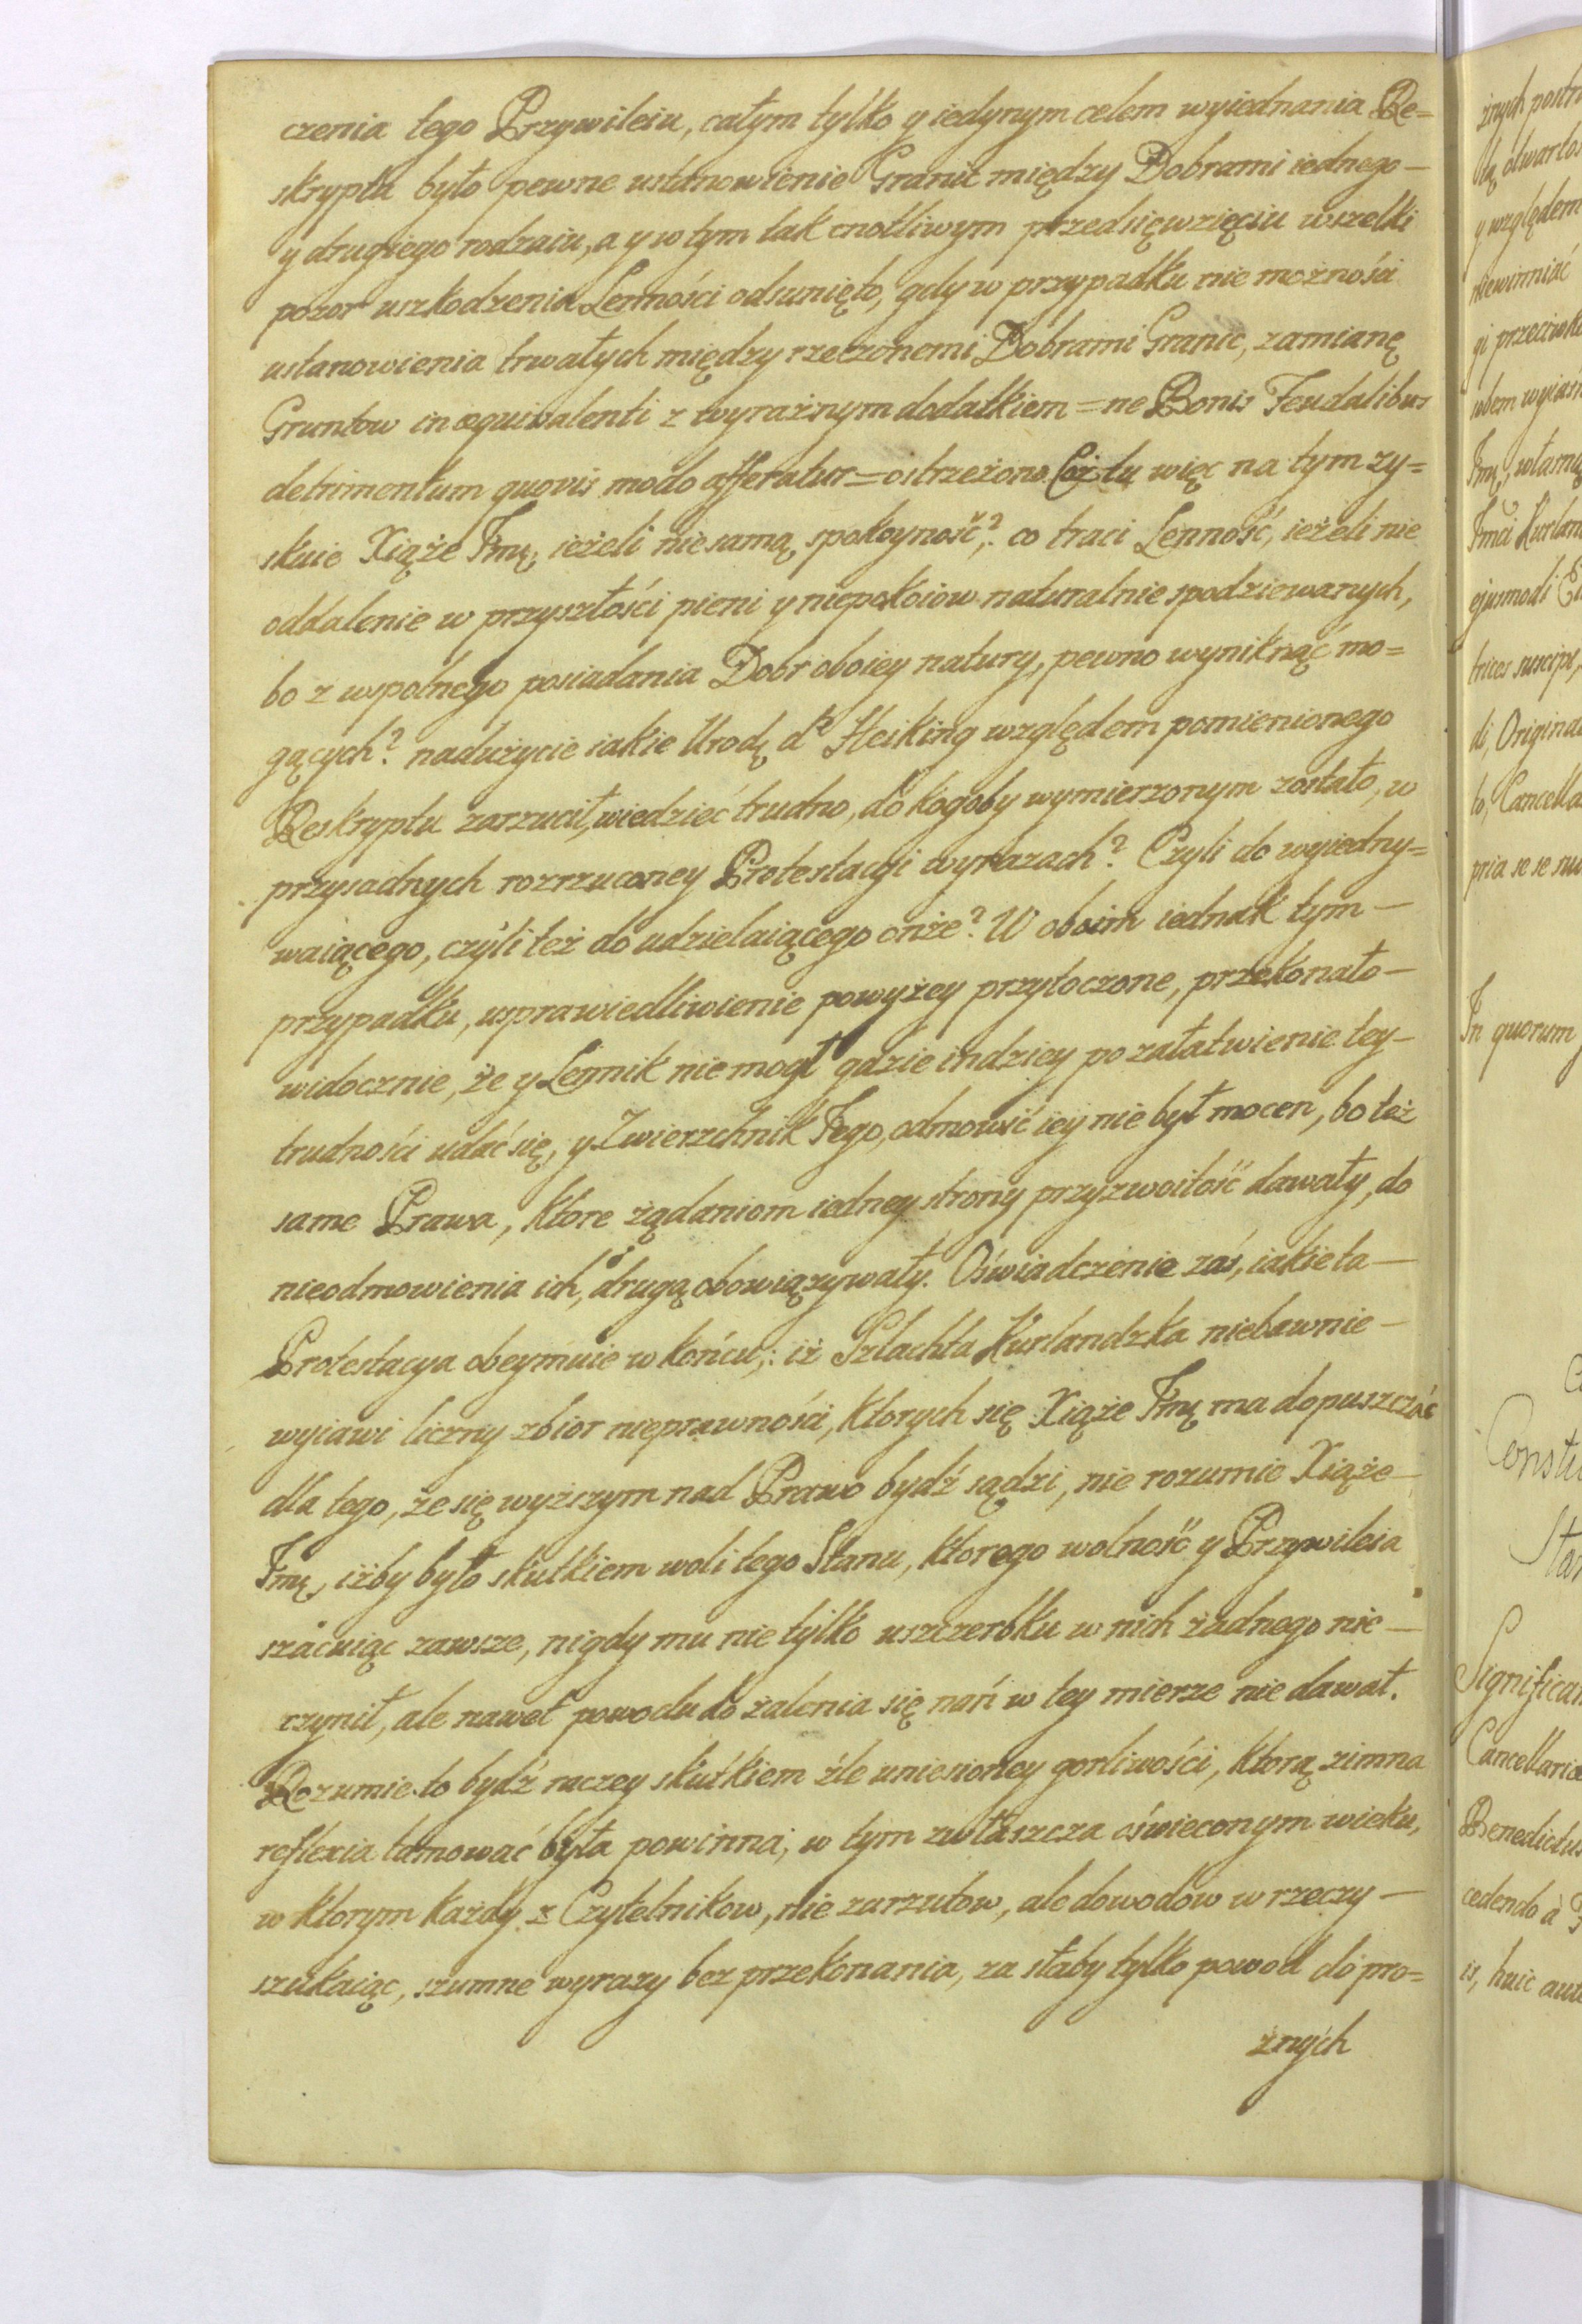 czenia tego Przywileiu, całym tylko y iedynym celem wyiednania Re=
skryptu było pewne ustanowienie Granic między Dobrami iednego —
y drugiego rodzaiu, a y w tym tak cnotliwym przedsięwzięciu wszelki
pozor uszkodzenia Lenności odsunięto, gdy w przypadku nie możności
ustanowienia trwałych między rzeczonemi Dobrami Granic, zamianę
Gruntow in æquivalenti z wyraźnym dodatkiem = ne Bonis Feudalibus
detrimentum quovis modo afferatur = ostrzeżono. Coż tu więc na tym zy=
skuie Xiąże Jmę, ieżeli nie samą spokoyność? co traci Lenność, ieżeli nie
oddalenie w przyszłości pieni y niepokoiow naturalnie spodziewanych,
bo z wspolnego posiadania Dobr oboiey natury, pewno wyniknąć mo=
gących? nadużycie iakie Urodz. de Heiking względem pomienionego
Reskryptu zarzucił, wiedzieć trudno, do kogoby wymierzonym zostało, w
przysadnych rozrzuconey Protestacyi wyrazach? Czyli do wyiedny=
waiącego, czyli też do udzielaiącego onże? W oboim iednak tym —
przypadku, usprawiedliwienie powyżey przytoczone, przekonało —
widocznie, że y Lennik nie mogł gdzie indziey po załatwienie tey —
trudności udać się, y Zwierzchnik Jego, odmowić iey nie był mocen, bo też
same Prawa, ktore żądaniom iedney strony przyzwoitość dawały, do
nieodmowienia ich, drugą obowiązywały. Oświadczenie zaś, iakie ta —
Protestacya obeymuie w końcu; iż Szlachta Kurlandzka niebawnie —
wyiawi liczny zbior nieprawności, ktorych się Xiąże Jmę ma dopuszczać
dla tego, że się wyższym nad Prawo bydź sądzi, nie rozumie Xiąże —
Jmę, iżby było skutkiem woli tego Stanu, ktorego wolność y Przywileia
szacuiąc zawsze, nigdy mu nie tylko uszczerbku w nich żadnego nie —
czynił, ale nawet powodu do żalenia się nań w tey mierze nie dawał.
Rozumie to bydź raczey skutkiem źle uniesioney gorliwości, ktorą zimna
reflexia tamować była powinna, w tym zwłaszcza oświeconym wieku,
w ktorym każdy z Czytelnikow, nie zarzutow, ale dowodow w rzeczy —
szukaiąc, szumne wyrazy bez przekonania, za słaby tylko powod do pro=
żnych
In quorum
Cancellariæ
Benedictus
cedendo à
is, huic